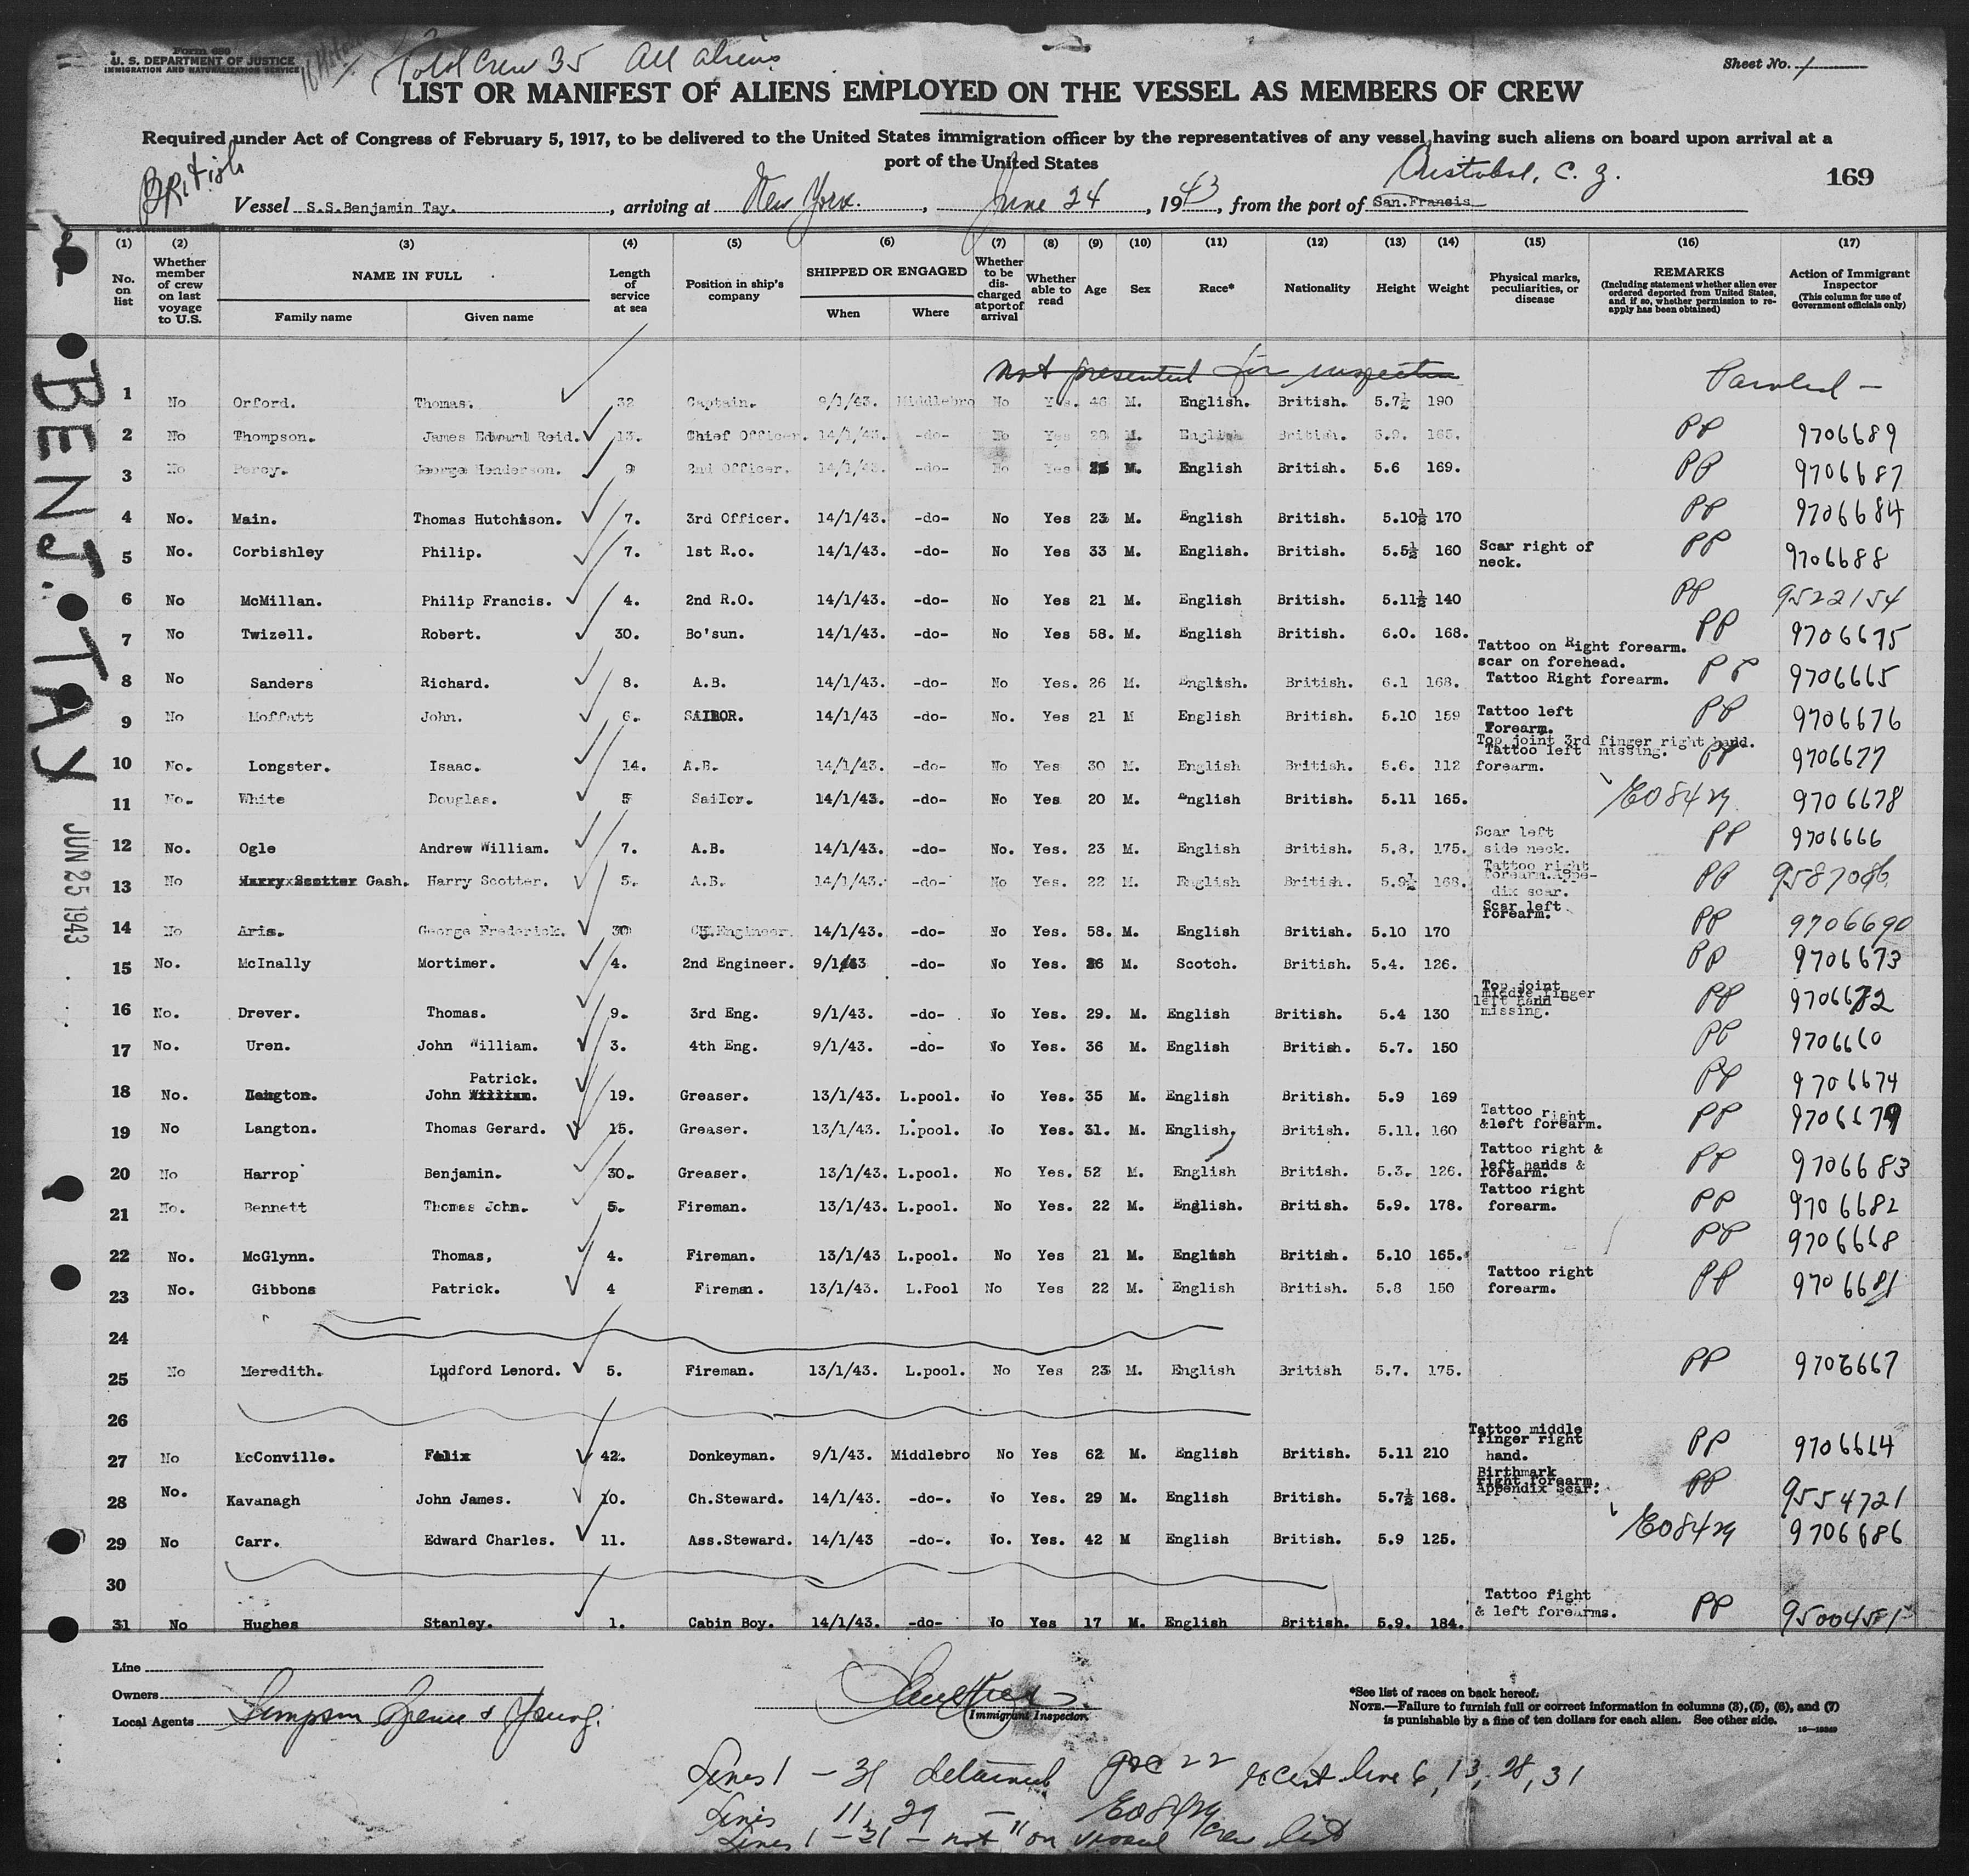 Form 680
U. S. DEPARTMENT OF JUSTICE
IMMIGRATION AND NATURALIZATION SERVICE
Total Crew 35 All aliens
Sheet No. 1
LIST OR MANIFEST OF ALIENS EMPLOYED ON THE VESSEL AS MEMBERS OF CREW
Required under Act of Congress of February 5, 1917, to be delivered to the United States immigration officer by the representatives of any vessel having such aliens on board upon arrival at a
port of the United States
British
Cristobal, C. Z.
169
Vessel S.S.Benjamin Tay. , arriving at New York. , June 24 , 1943 , from the port of San.Francis
(1) (2) (3) (4) (5) (6) (7) (8) (9) (10) (11) (12) (13) (14) (15) (16) (17)
No. on list
Whether member of crew on last voyage to U.S.
NAME IN FULL
Family name Given name
Length of service at sea
Position in ship's company
SHIPPED OR ENGAGED
When Where
Whether to be discharged at port of arrival
Whether able to read
Age
Sex
Race*
Nationality
Height
Weight
Physical marks, peculiarities, or disease
REMARKS
(Including statement whether alien ever ordered deported from United States, and if so, whether permission to reapply has been obtained)
Action of Immigrant Inspector
(This column for use of Government officials only)
not presented for inspection
1 No Orford. Thomas. 32 Captain. 9/1/43. Middlebro No Yes. 46 M. English. British. 5.7½ 190 Paroled -
2 No Thompson. James Edward Reid. 13. Chief Officer. 14/1/43. -do- No Yes 28 M. English British. 5.9. 165. PP 9706689
3 No Percy. George Henderson. 9 2nd Officer. 14/1/43. -do- No Yes M. English British. 5.6 169. PP 9706687
4 No. Main. Thomas Hutchison. 7. 3rd Officer. 14/1/43. -do- No Yes 23 M. English British. 5.10½ 170 PP 9706684
5 No. Corbishley Philip. 7. 1st R.o. 14/1/43. -do- No Yes 33 M. English. British. 5.5½ 160 Scar right of neck. PP 9706688
6 No McMillan. Philip Francis. 4. 2nd R.O. 14/1/43. -do- No Yes 21 M. English British. 5.11½ 140 PP 9522154
7 No Twizell. Robert. 30. Bo'sun. 14/1/43. -do- No Yes 58. M. English British. 6.0. 168. Tattoo on Right forearm. scar on forehead. PP 9706675
8 No Sanders Richard. 8. A.B. 14/1/43. -do- No Yes. 26 M. English. British. 6.1 168. Tattoo Right forearm. PP 9706665
9 No Moffatt John. 6. SAILOR. 14/1/43 -do- No. Yes 21 M English British. 5.10 159 Tattoo left Forearm. PP 9706676
10 No. Longster. Isaac. 14. A.B. 14/1/43. -do- No Yes 30 M. English British. 5.6. 112 Top joint 3rd finger right hand. missing. Tattoo left forearm. PP 9706677
11 No. White Douglas. 5 Sailor. 14/1/43. -do- No Yes 20 M. English British. 5.11 165. EO 8429 9706678
12 No. Ogle Andrew William. 7. A.B. 14/1/43. -do- No. Yes. 23 M. English British. 5.8. 175. Scar left side neck. PP 9706666
13 No Harry Scotter Gash. Harry Scotter. 5. A.B. 14/1/43. -do- No Yes. 22 M. English British. 5.9½ 168. Tattoo right forearm. Appendix scar. PP 9587086
14 No Aris. George Frederick. 30 Ch.Engineer. 14/1/43. -do- No Yes. 58. M. English British. 5.10 170 Scar left forearm. PP 9706690
15 No. McInally Mortimer. 4. 2nd Engineer. 9/1/43 -do- No Yes. 26 M. Scotch. British. 5.4. 126. PP 9706673
16 No. Drever. Thomas. 9. 3rd Eng. 9/1/43. -do- No Yes. 29. M. English British. 5.4 130 Top joint middle finger left hand missing. PP 9706672
17 No. Uren. John William. 3. 4th Eng. 9/1/43. -do- No Yes. 36 M. English British. 5.7. 150 PP 9706660
18 No. Langton. John William. Patrick. 19. Greaser. 13/1/43. L.pool. No Yes. 35 M. English British. 5.9 169 PP 9706674
19 No Langton. Thomas Gerard. 15. Greaser. 13/1/43. L.pool. No Yes. 31. M. English. British. 5.11. 160 Tattoo right &left forearm. PP 9706679
20 No Harrop Benjamin. 30. Greaser. 13/1/43. L.pool. No Yes. 52 M. English British. 5.3. 126. Tattoo right & left hands & forearm. PP 9706683
21 No. Bennett Thomas John. 5. Fireman. 13/1/43. L.pool. No Yes. 22 M. English. British. 5.9. 178. Tattoo right forearm. PP 9706682
22 No. McGlynn. Thomas, 4. Fireman. 13/1/43 L.pool. No Yes 21 M. English British. 5.10 165. PP 9706668
23 No. Gibbons Patrick. 4 Fireman. 13/1/43. L.Pool No Yes 22 M. English British. 5.8 150 Tattoo right forearm. PP 9706681
24
25 No Meredith. Ludford Lenord. 5. Fireman. 13/1/43. L.pool. No Yes 23 M. English British 5.7. 175. PP 9706667
26
27 No McConville. Felix 42. Donkeyman. 9/1/43. Middlebro No Yes 62 M. English British. 5.11 210 Tattoo middle finger right hand. PP 9706664
28 No. Kavanagh John James. 10. Ch.Steward. 14/1/43. -do-. No Yes. 29 M. English British. 5.7½ 168. Birthmark right forearm, Appendix Scar. PP 9554721
29 No Carr. Edward Charles. 11. Ass.Steward. 14/1/43 -do-. No. Yes. 42 M English British. 5.9 125. EO 8429 9706686
30
31 No Hughes Stanley. 1. Cabin Boy. 14/1/43. -do- No Yes 17 M. English British. 5.9. 184. Tattoo right & left forearms. PP
BENJ. TAY
JUN 25 1943
Line
Owners
Local Agents Simpson Spence & Young.
Immigrant Inspector.
*See list of races on back hereof.
NOTE.—Failure to furnish full or correct information in columns (3), (5), (6), and (7)
is punishable by a fine of ten dollars for each alien. See other side.
Lines 1 - 31 detained except line 6, 13, 28, 31
Lines 11, 29 - " EO 8429
Lines 1 - 31 - not on crew list